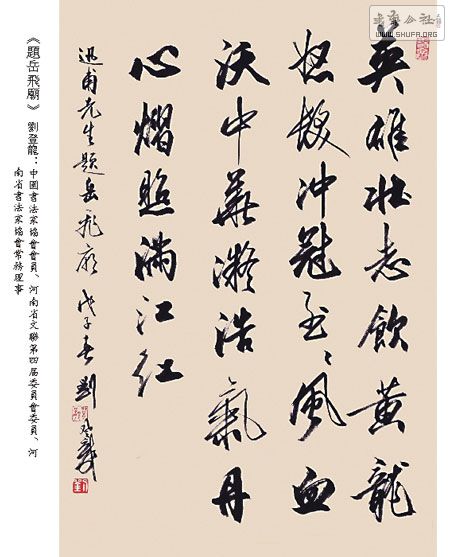 英雄壯志飲黃龍
怒髮冲冠風血
沃中華凝浩氣丹
心熠照滿江紅
迅甫先生題岳飛廟 戊子春劉登龍
《題岳飛廟》 劉登龍：中國書法家協會會員、河南省文聯第四届委員會委員、河
南省書法家協會常務理事
公社
WWW.SHUFA.ORG